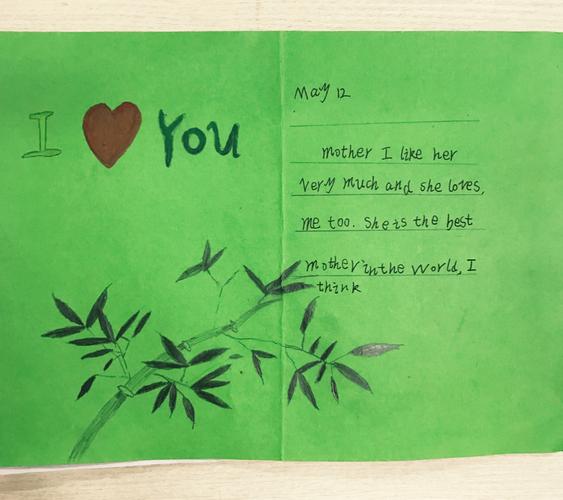 I ❤ You
May 12
mother I like her
very much and she loves,
me too. She is the best
mother in the world, I
think